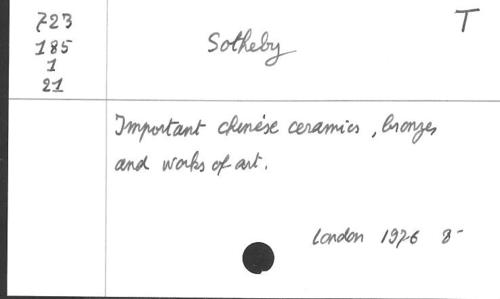 723
185
1
21
T
Sotheby
Important chinése ceramics, bronzes
and works of art.
London 1976 8-